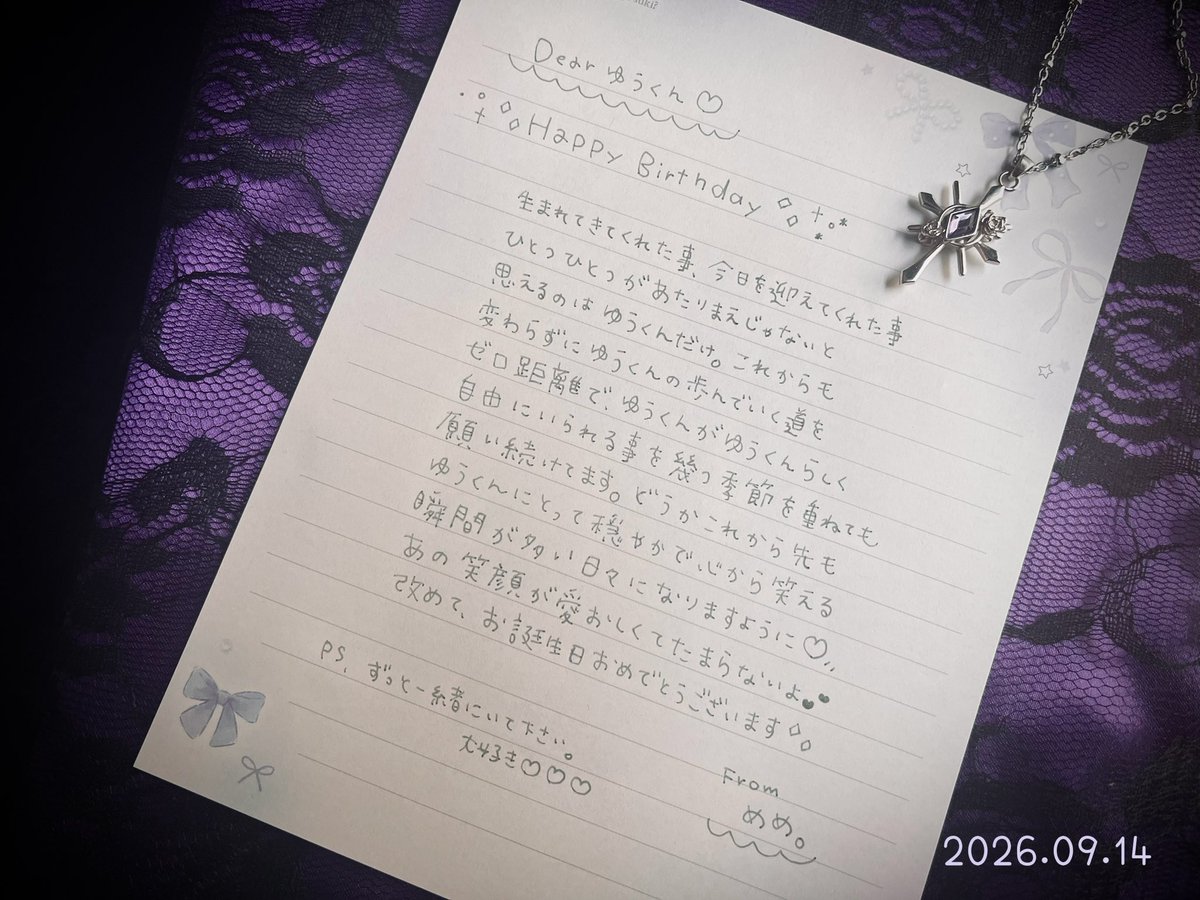 Dear ゆうくん♡
Happy Birthday
生まれてきてくれた事、今日を迎えてくれた事
ひとつひとつがあたりまえじゃないと
思えるのはゆうくんだけ。これからも
変わらずにゆうくんの歩んでいく道を
ゼロ距離で、ゆうくんがゆうくんらしく
自由にいられる事を幾つ季節を重ねても
願い続けてます。どうかこれから先も
ゆうくんにとって穏やかで、心から笑える
瞬間が多い日々になりますように♡
あの笑顔が愛おしくてたまらないよ
改めて、お誕生日おめでとうございます
PS. ずっと一緒にいて下さい。
大好き♡♡♡
From
めめ。
2026.09.14